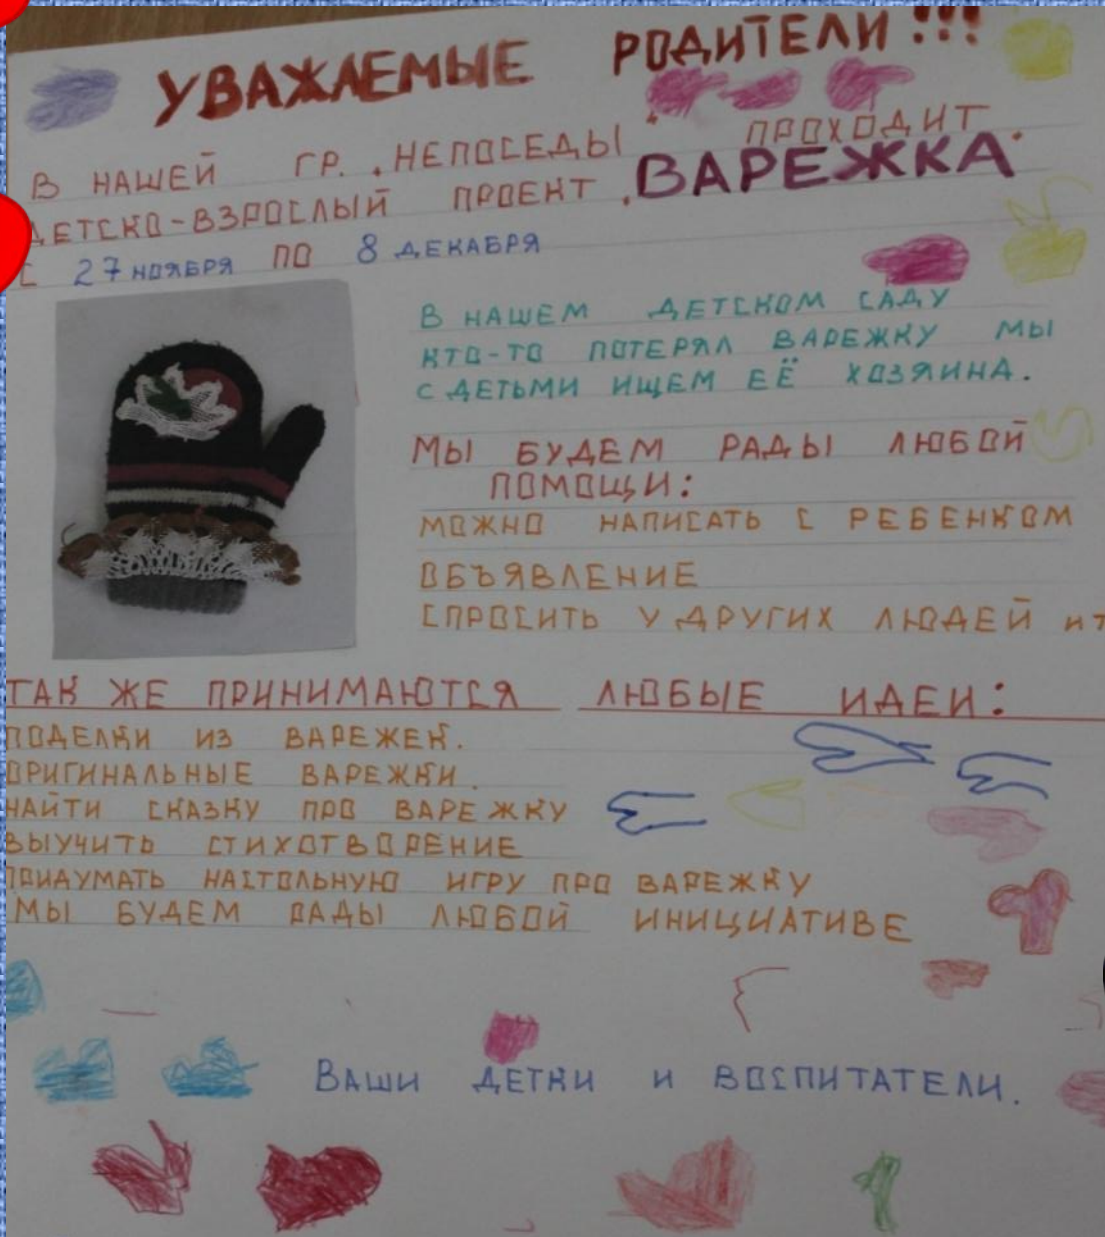 УВАЖАЕМЫЕ РОДИТЕЛИ!!!
В НАШЕЙ ГР. "НЕПОСЕДЫ" ПРОХОДИТ
ДЕТСКО-ВЗРОСЛЫЙ ПРОЕКТ "ВАРЕЖКА"
С 27 НОЯБРЯ ПО 8 ДЕКАБРЯ
В НАШЕМ ДЕТСКОМ САДУ
КТО-ТО ПОТЕРЯЛ ВАРЕЖКУ МЫ
С ДЕТЬМИ ИЩЕМ ЕЁ ХОЗЯИНА.
МЫ БУДЕМ РАДЫ ЛЮБОЙ
ПОМОЩИ:
МОЖНО НАПИСАТЬ С РЕБЕНКОМ
ОБЪЯВЛЕНИЕ
СПРОСИТЬ У ДРУГИХ ЛЮДЕЙ ит
ТАК ЖЕ ПРИНИМАЮТСЯ ЛЮБЫЕ ИДЕИ:
ПОДЕЛКИ ИЗ ВАРЕЖЕК.
ОРИГИНАЛЬНЫЕ ВАРЕЖКИ.
НАЙТИ СКАЗКУ ПРО ВАРЕЖКУ
ВЫУЧИТЬ СТИХОТВОРЕНИЕ
ПРИДУМАТЬ НАСТОЛЬНУЮ ИГРУ ПРО ВАРЕЖКУ
МЫ БУДЕМ РАДЫ ЛЮБОЙ ИНИЦИАТИВЕ
ВАШИ ДЕТКИ И ВОСПИТАТЕЛИ.